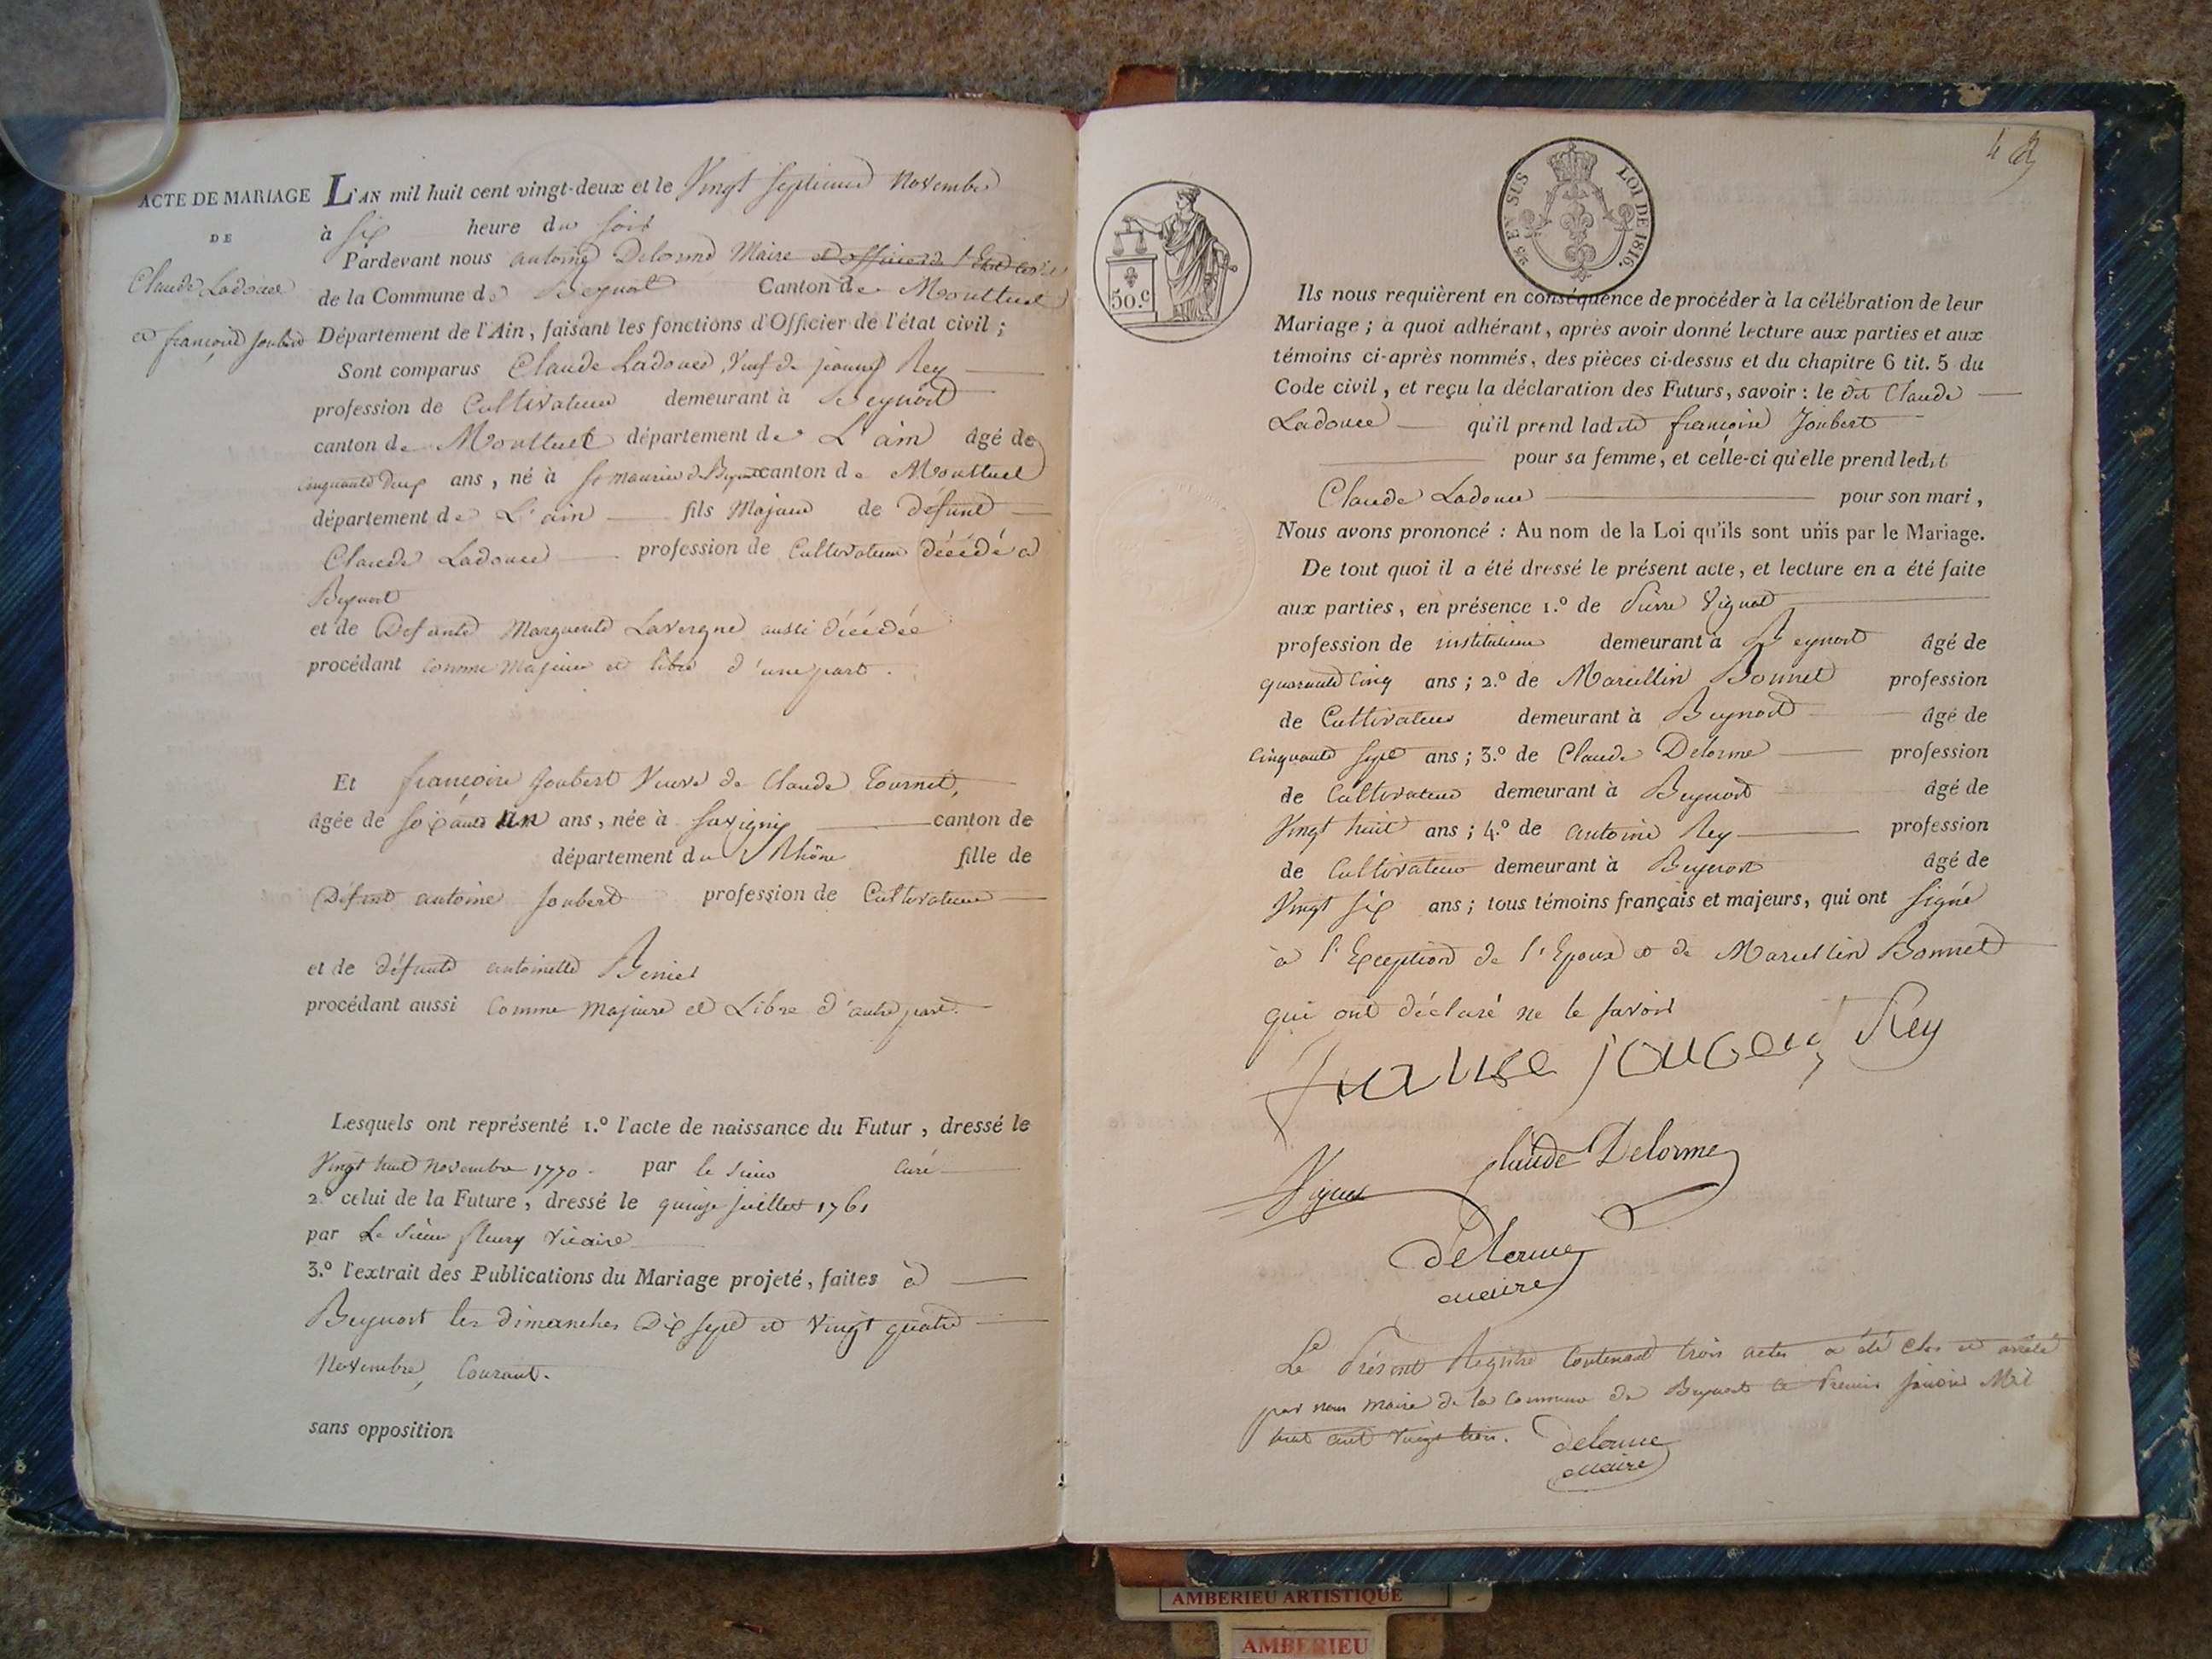 ACTE DE MARIAGE
DE
Claude Ladouce
et françoise Joubert
L'AN mil huit cent vingt-deux et le Vingt septieme Novembre
à six heure du soir
Pardevant nous antoine Delorme Maire et officier de l'Etat civil
de la Commune de Beynost Canton de Montluel
Département de l'Ain, faisant les fonctions d'Officier de l'état civil ;
Sont comparus Claude Ladouce, Veuf de jeanne Rey
profession de Cultivateur demeurant à Beynost
canton de Montluel département de L'ain âgé de
cinquante deux ans, né à st maurice de Beynost canton de Montluel
département de L'ain fils Majeur de défunt
Claude Ladouce profession de Cultivateur décédé a
Beynost
et de Defunte Marguerite Lavergne aussi décédée
procédant comme Majeur et libre d'une part.
Et françoise Joubert Veuve de Claude Tournet,
âgée de soixante un ans, née à Savigny canton de
département du Rhône fille de
Défunt antoine Joubert profession de Cultivateur
et de défunte antoinette
procédant aussi Comme Majeure et Libre d'autre part.
Lesquels ont représenté 1.º l'acte de naissance du Futur, dressé le
Vingt huit Novembre 1770 par le sieur curé
2.º celui de la Future, dressé le quinze juillet 1761
par Le sieur fleury Vicaire
3.º l'extrait des Publications du Mariage projeté, faites à
Beynost les dimanches Dix sept et Vingt quatre
Novembre, Courant.
sans opposition
4
50.c
25 EN SUS LOI DE 1816.
Ils nous requièrent en conséquence de procéder à la célébration de leur
Mariage ; à quoi adhérant, après avoir donné lecture aux parties et aux
témoins ci-après nommés, des pièces ci-dessus et du chapitre 6 tit. 5 du
Code civil, et reçu la déclaration des Futurs, savoir : le dit Claude
Ladouce qu'il prend ladite françoise Joubert
pour sa femme, et celle-ci qu'elle prend ledit
Claude Ladouce pour son mari,
Nous avons prononcé : Au nom de la Loi qu'ils sont unis par le Mariage.
De tout quoi il a été dressé le présent acte, et lecture en a été faite
aux parties, en présence 1.º de Pierre Vignat
profession de instituteur demeurant à Beynost âgé de
quarante Cinq ans ; 2.º de Marcellin Bonnet profession
de Cultivateur demeurant à Beynost âgé de
Cinquante sept ans ; 3.º de Claude Delorme profession
de Cultivateur demeurant à Beynost âgé de
Vingt huit ans ; 4.º de antoine Rey profession
de Cultivateur demeurant à Beynost âgé de
Vingt six ans ; tous témoins français et majeurs, qui ont signé
à l'Exception de l'Epoux et de Marcellin Bonnet
qui ont déclaré ne le savoir
Rey
Claude Delorme
Delorme
maire
Le Présent Registre Contenant trois actes a été Clos et arrêté
par nous Maire de la Commune de Beynost le Premier janvier Mil
huit cent Vingt trois. Delorme
maire
AMBERIEU ARTISTIQUE
AMBERIEU